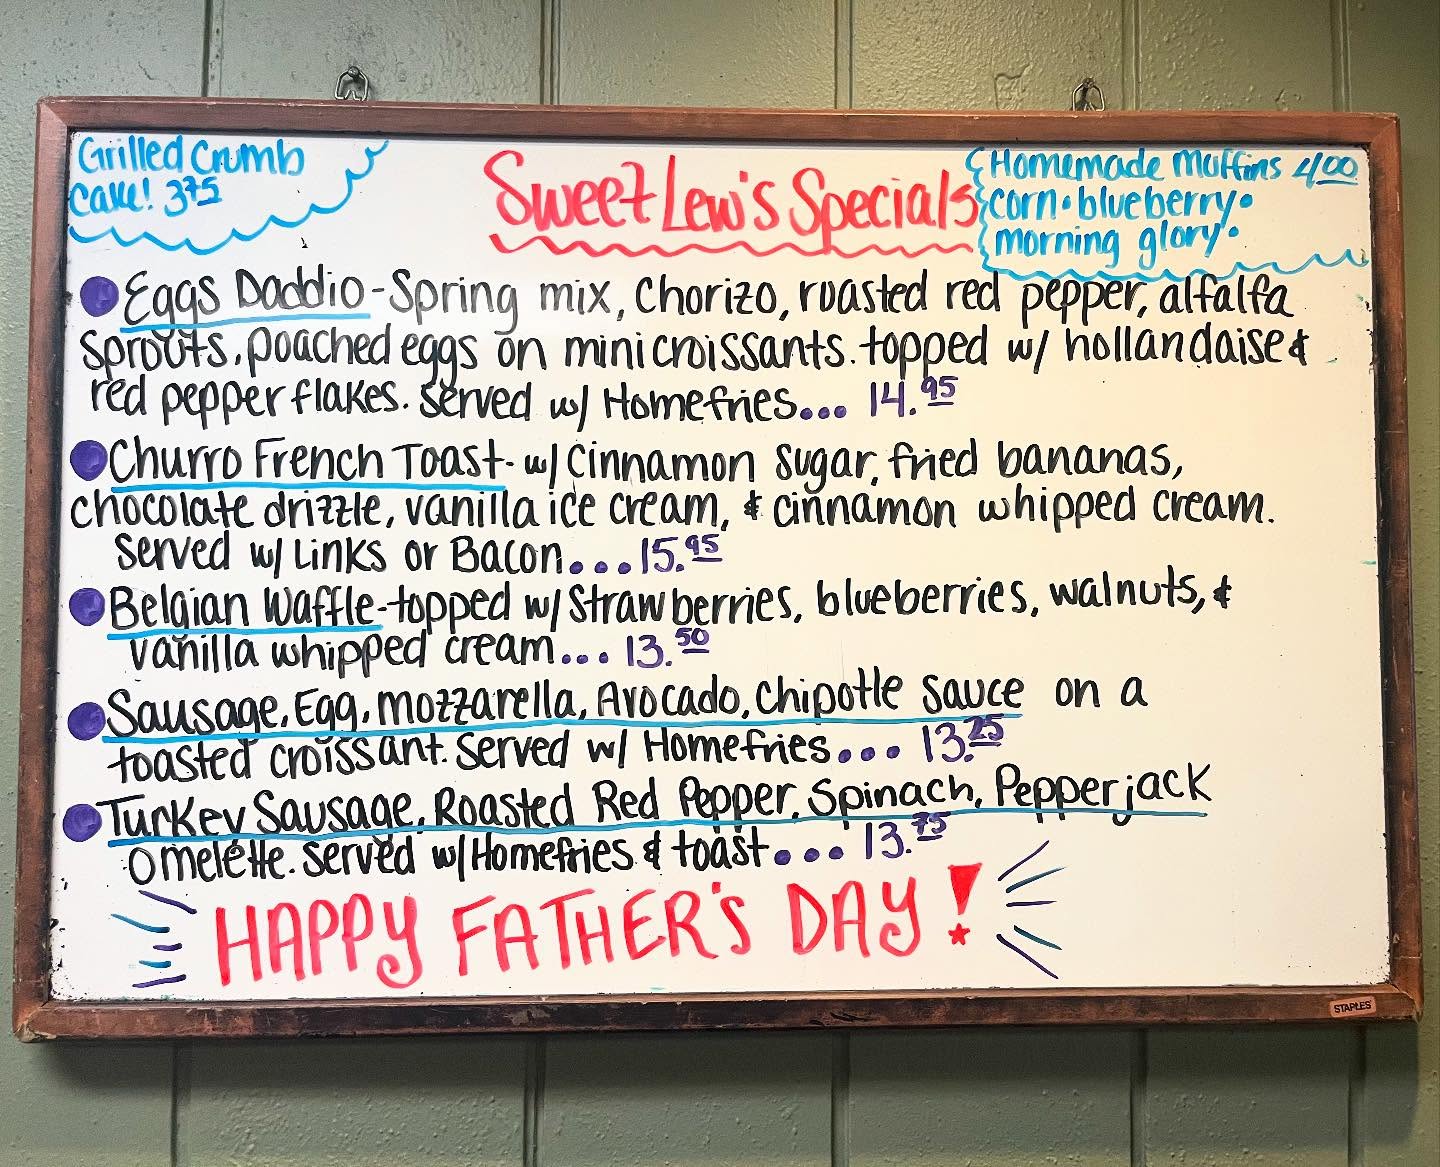 Grilled Crumb
Cake! 3.75
Sweet Lew's Specials
Homemade Muffins 4.00
corn • blueberry •
morning glory •
Eggs Daddio - Spring mix, Chorizo, roasted red pepper, alfalfa
sprouts, poached eggs on mini croissants. topped w/ hollandaise &
red pepper flakes. served w/ Homefries... 14.95
Churro French Toast - w/ Cinnamon Sugar, fried bananas,
chocolate drizzle, vanilla ice cream, & cinnamon whipped cream.
served w/ Links or Bacon... 15.95
Belgian Waffle - topped w/ Strawberries, blueberries, walnuts, &
vanilla whipped cream... 13.50
Sausage, Egg, Mozzarella, Avocado, Chipotle Sauce on a
toasted croissant. served w/ Homefries... 13.25
Turkey Sausage, Roasted Red Pepper, Spinach, Pepperjack
omelette. served w/ Homefries & toast... 13.75
HAPPY FATHER'S DAY!
STAPLES